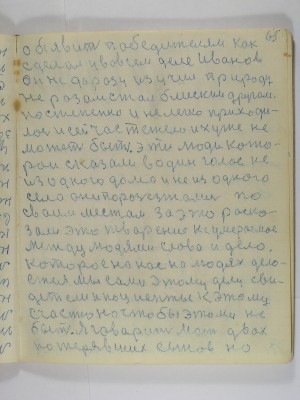 объявит победителям как 65
сделал и во всем деле Иванов
он не доразу изучил природу
не разом стал близким другом.
постепенно и не легко приходи-
лось и сейчас тяжело и хуже не
может быть. эти люди кото-
рои сказали водин голос не
из одного дома и не из одного
села они по
своим местам за это раска-
зали это творение не умераемое
между людями слова и дело,
которое на нас на людях
мы сами этому делу сви-
детели и к этому
счастю чтобы этому не
быт. Я гаварит мат двах
потерявших сынов но